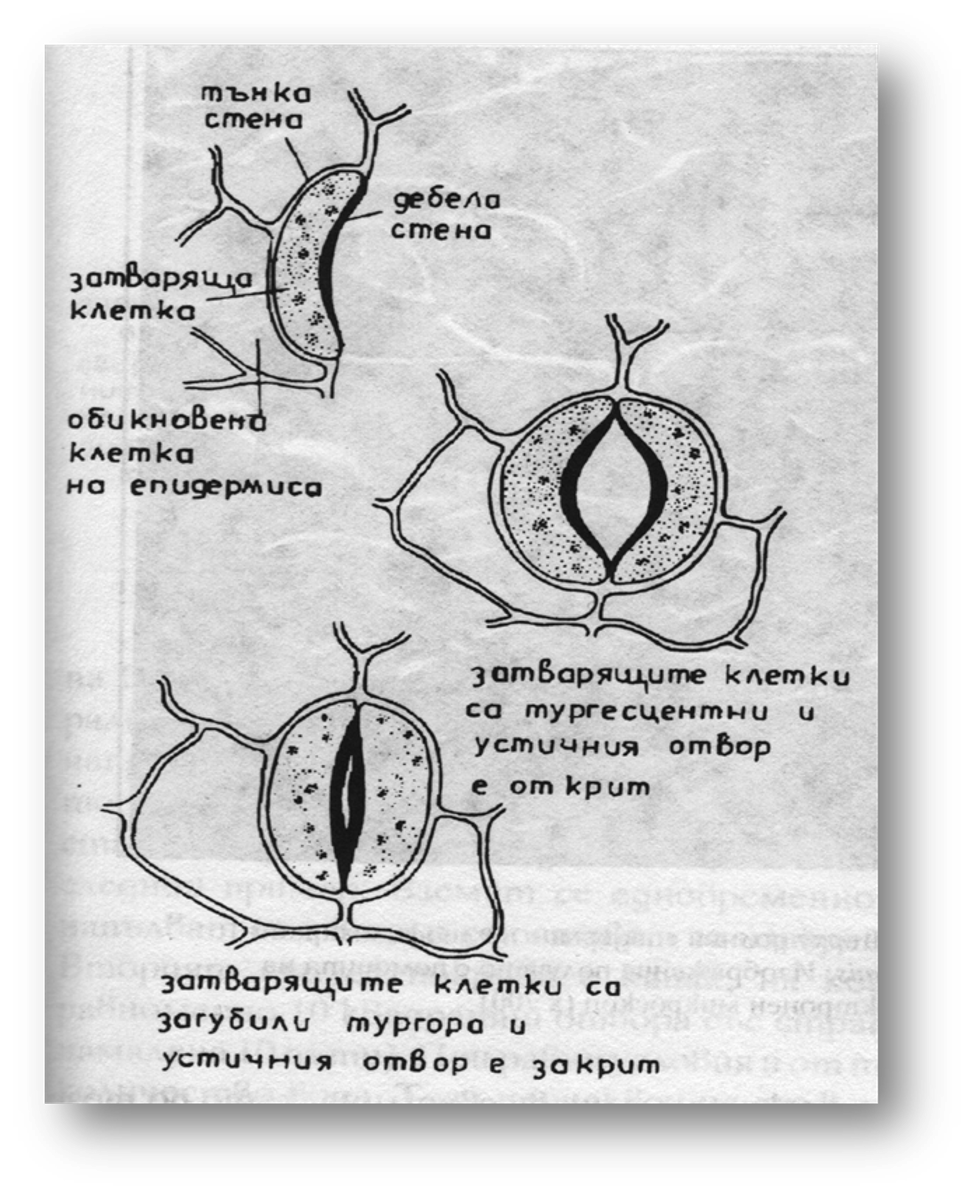 тънка
стена
дебела
стена
затваряща
клетка
обикновена
клетка
на епидермиса
затварящите клетки
са тургесцентни и
устичния отвор
е открит
затварящите клетки са
загубили тургора и
устичния отвор е закрит